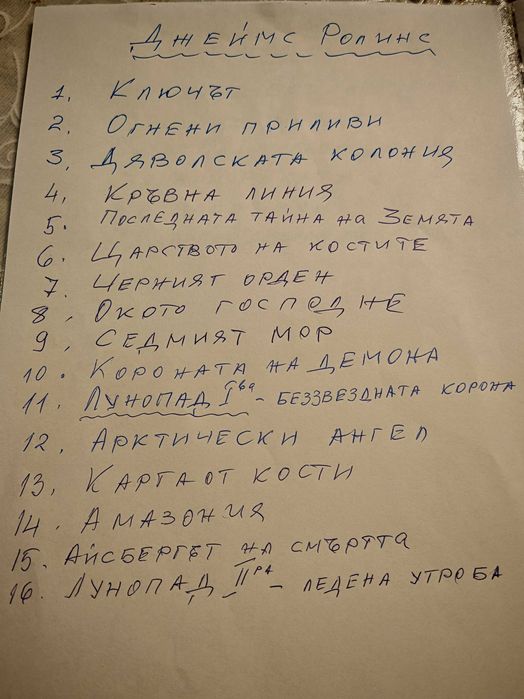 Джеймс Ролинс
1. Ключът
2. Огнени приливи
3. Дяволската колония
4. Кръвна линия
5. Последната тайна на Земята
6. Царството на костите
7. Черният орден
8. Окото господне
9. Седмият мор
10. Короната на демона
11. Лунопад I ва - беззвездната корона
12. Арктически ангел
13. Карта от кости
14. Амазония
15. Айсбергът на смъртта
16. Лунопад II ра - ледена утроба